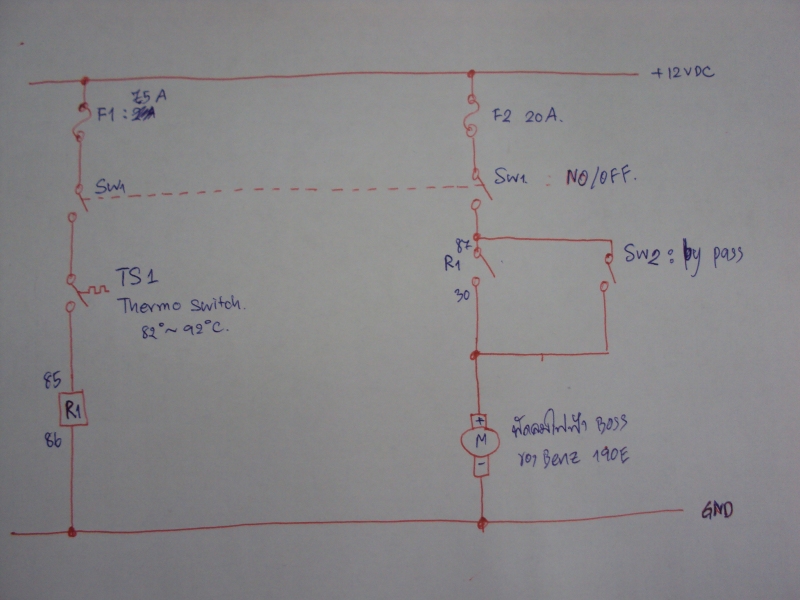 +12VDC
7.5A
F1 :
F2 20A.
SW1
SW1 : NO/OFF.
87
R1
30
SW2 : by pass
TS1
Thermo Switch.
82° ~ 92°C.
85
R1
86
+
M
-
พัดลมไฟฟ้า BOSS
ของ Benz 190E
GND